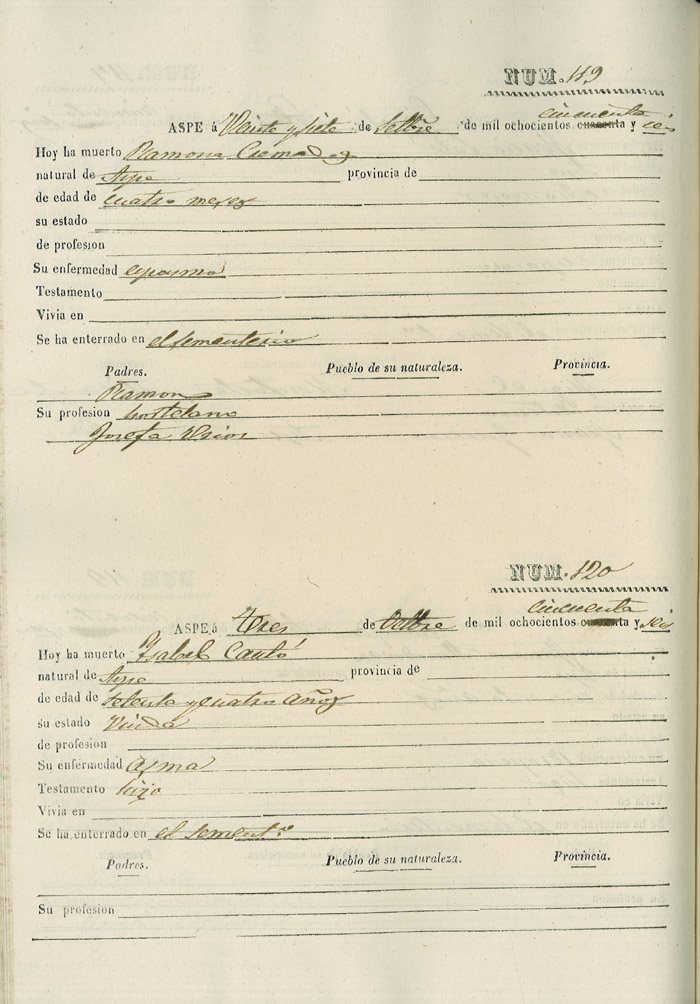 NUM. 119
cincuenta
ASPE á Veinte y siete de Setbre de mil ochocientos cuarenta y seis
Hoy ha muerto Ramona Cremades
natural de Aspe provincia de
de edad de cuatro meses
su estado
de profesion
Su enfermedad espasmo
Testamento
Vivia en
Se ha enterrado en el sementerio
Padres. Pueblo de su naturaleza. Provincia.
Ramon
Su profesion hortelano
Josefa
NUM. 120
cincuenta
ASPE á Tres de Octbre de mil ochocientos cuarenta y seis
Hoy ha muerto Isabel Cantó
natural de Aspe provincia de
de edad de setenta y cuatro años
su estado Viuda
de profesion
Su enfermedad asma
Testamento hizo
Vivia en
Se ha enterrado en el sementº
Padres. Pueblo de su naturaleza. Provincia.
Su profesion